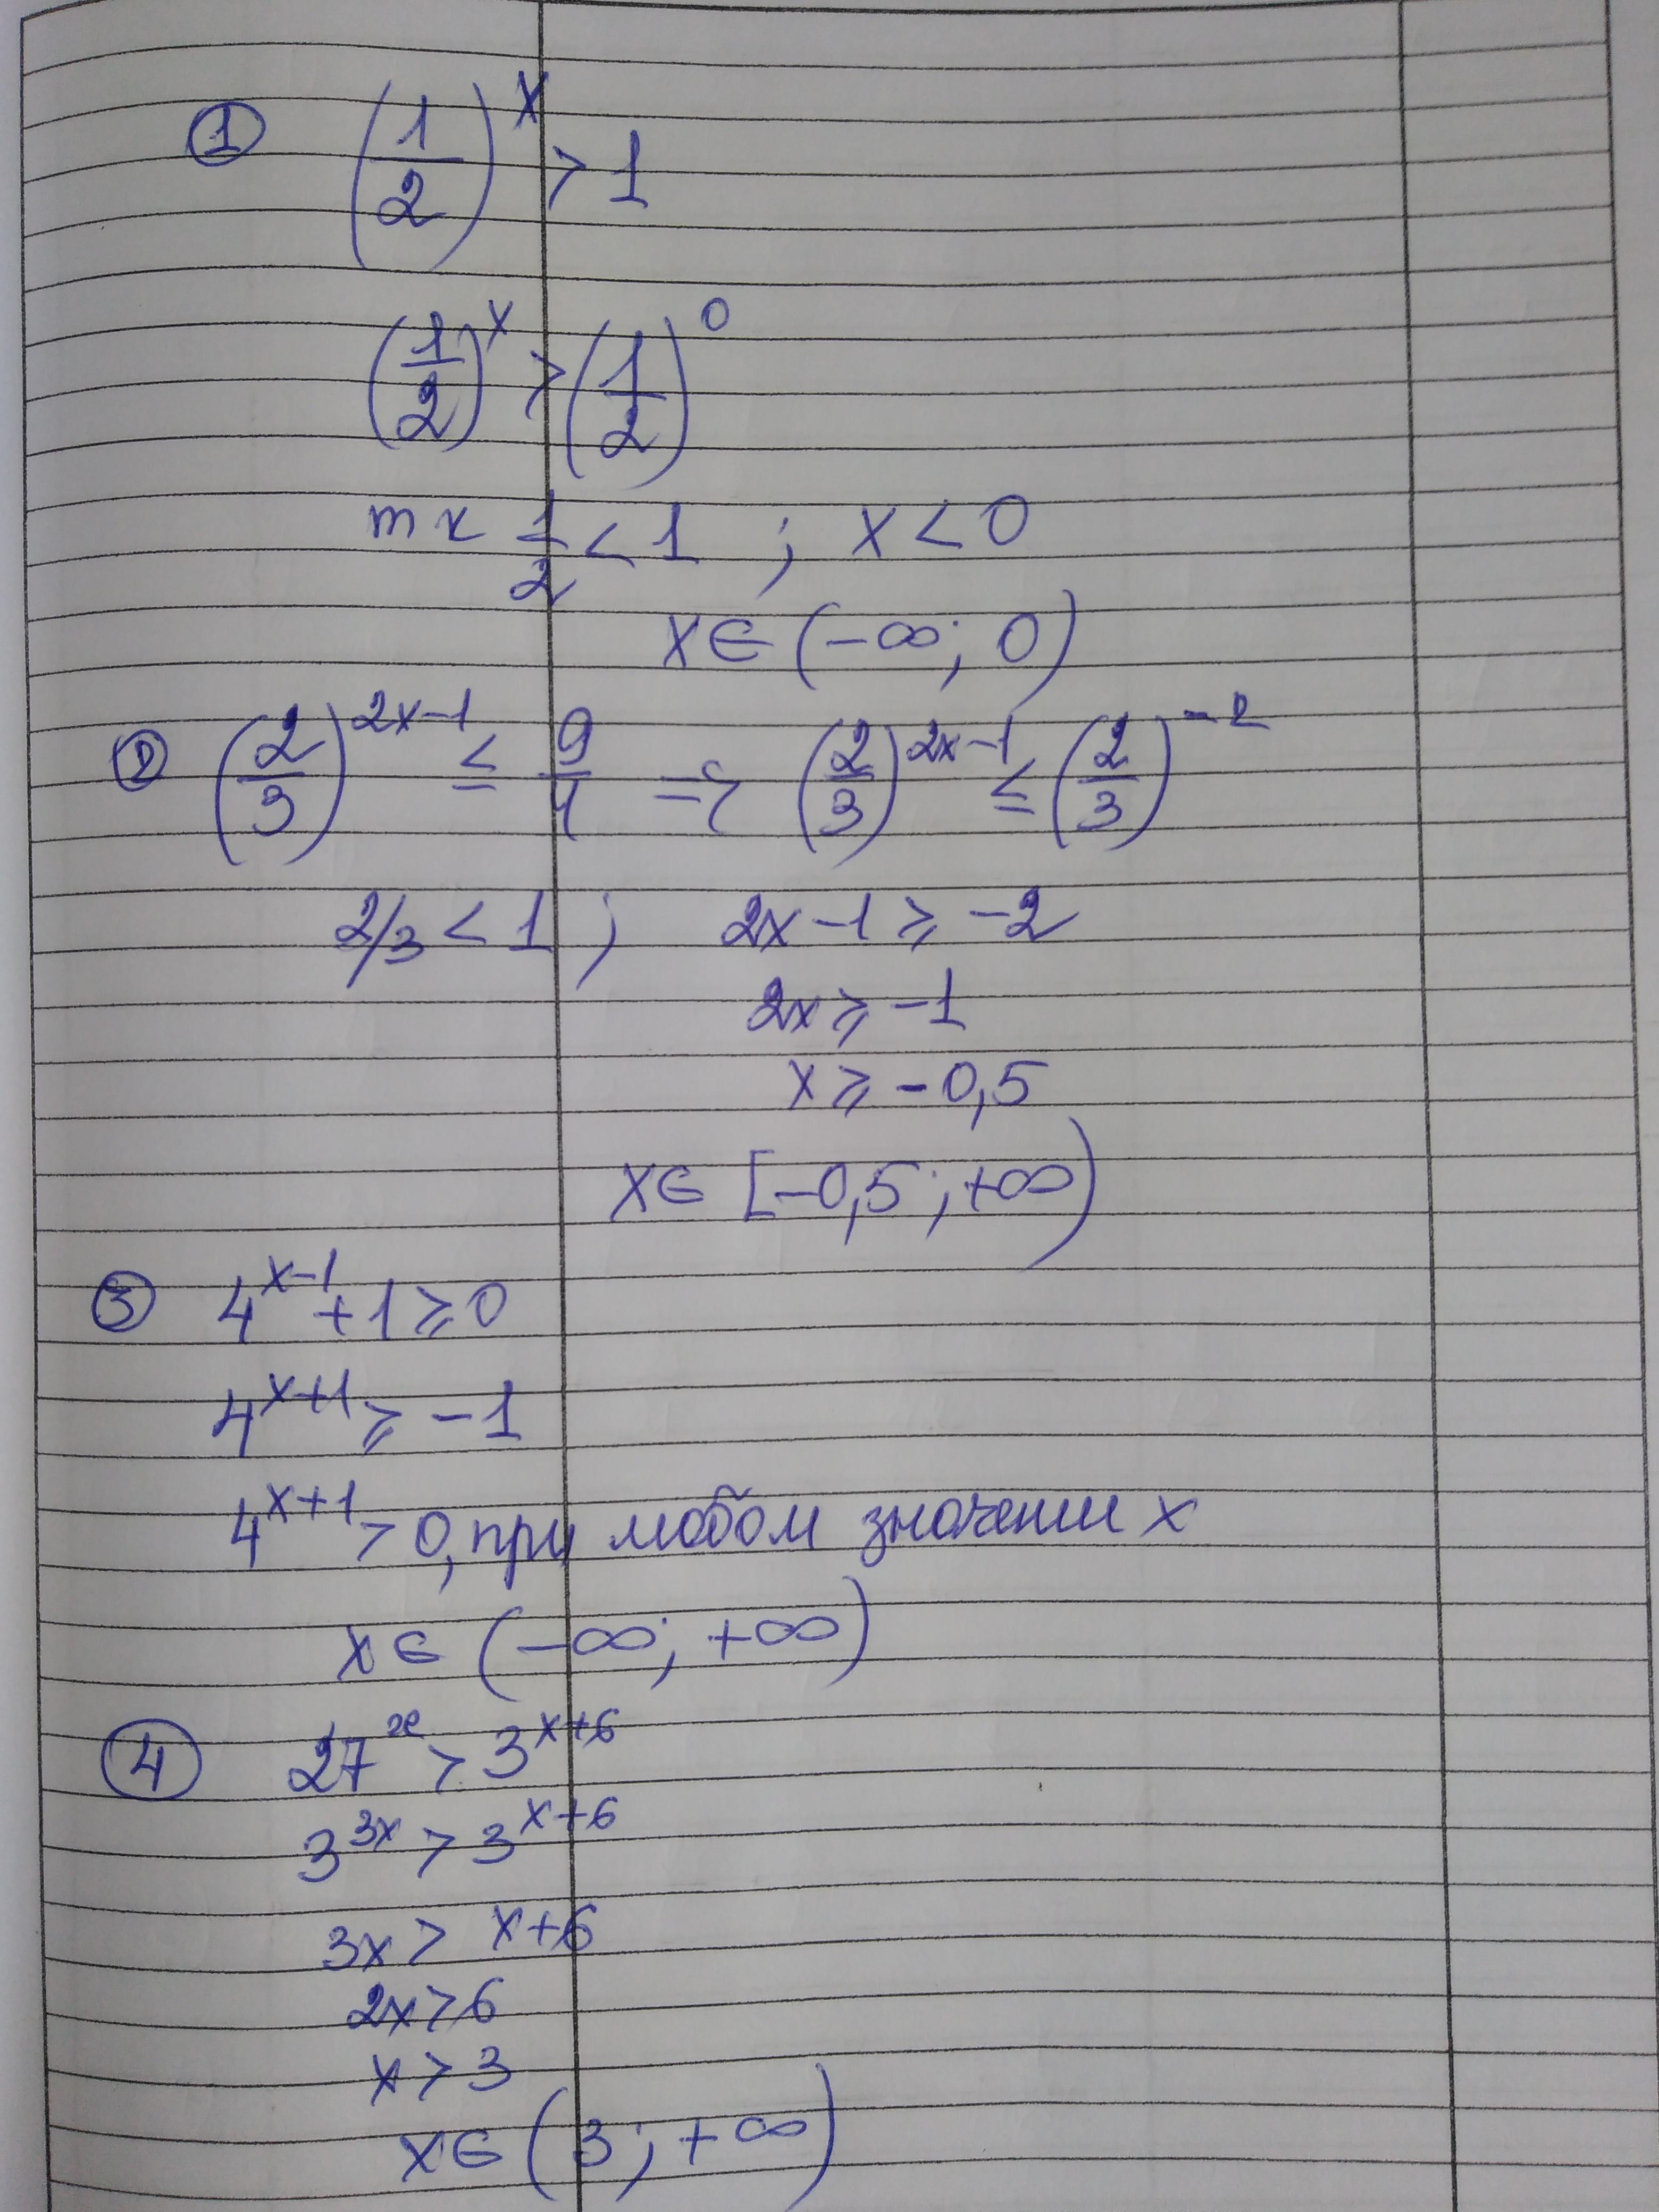 ① (1/2)^x > 1
(1/2)^x > (1/2)^0
тк 1/2 < 1 ; x < 0
x ∈ (-∞; 0)
② (2/3)^(2x-1) ≤ 9/4 => (2/3)^(2x-1) ≤ (2/3)^(-2)
2/3 < 1 ; 2x-1 ≥ -2
2x ≥ -1
x ≥ -0,5
x ∈ [-0,5; +∞)
③ 4^(x-1) + 1 ≥ 0
4^(x+1) ≥ -1
4^(x+1) > 0, при любом значении x
x ∈ (-∞; +∞)
④ 27^x > 3^(x+6)
3^(3x) > 3^(x+6)
3x > x+6
2x > 6
x > 3
x ∈ (3; +∞)